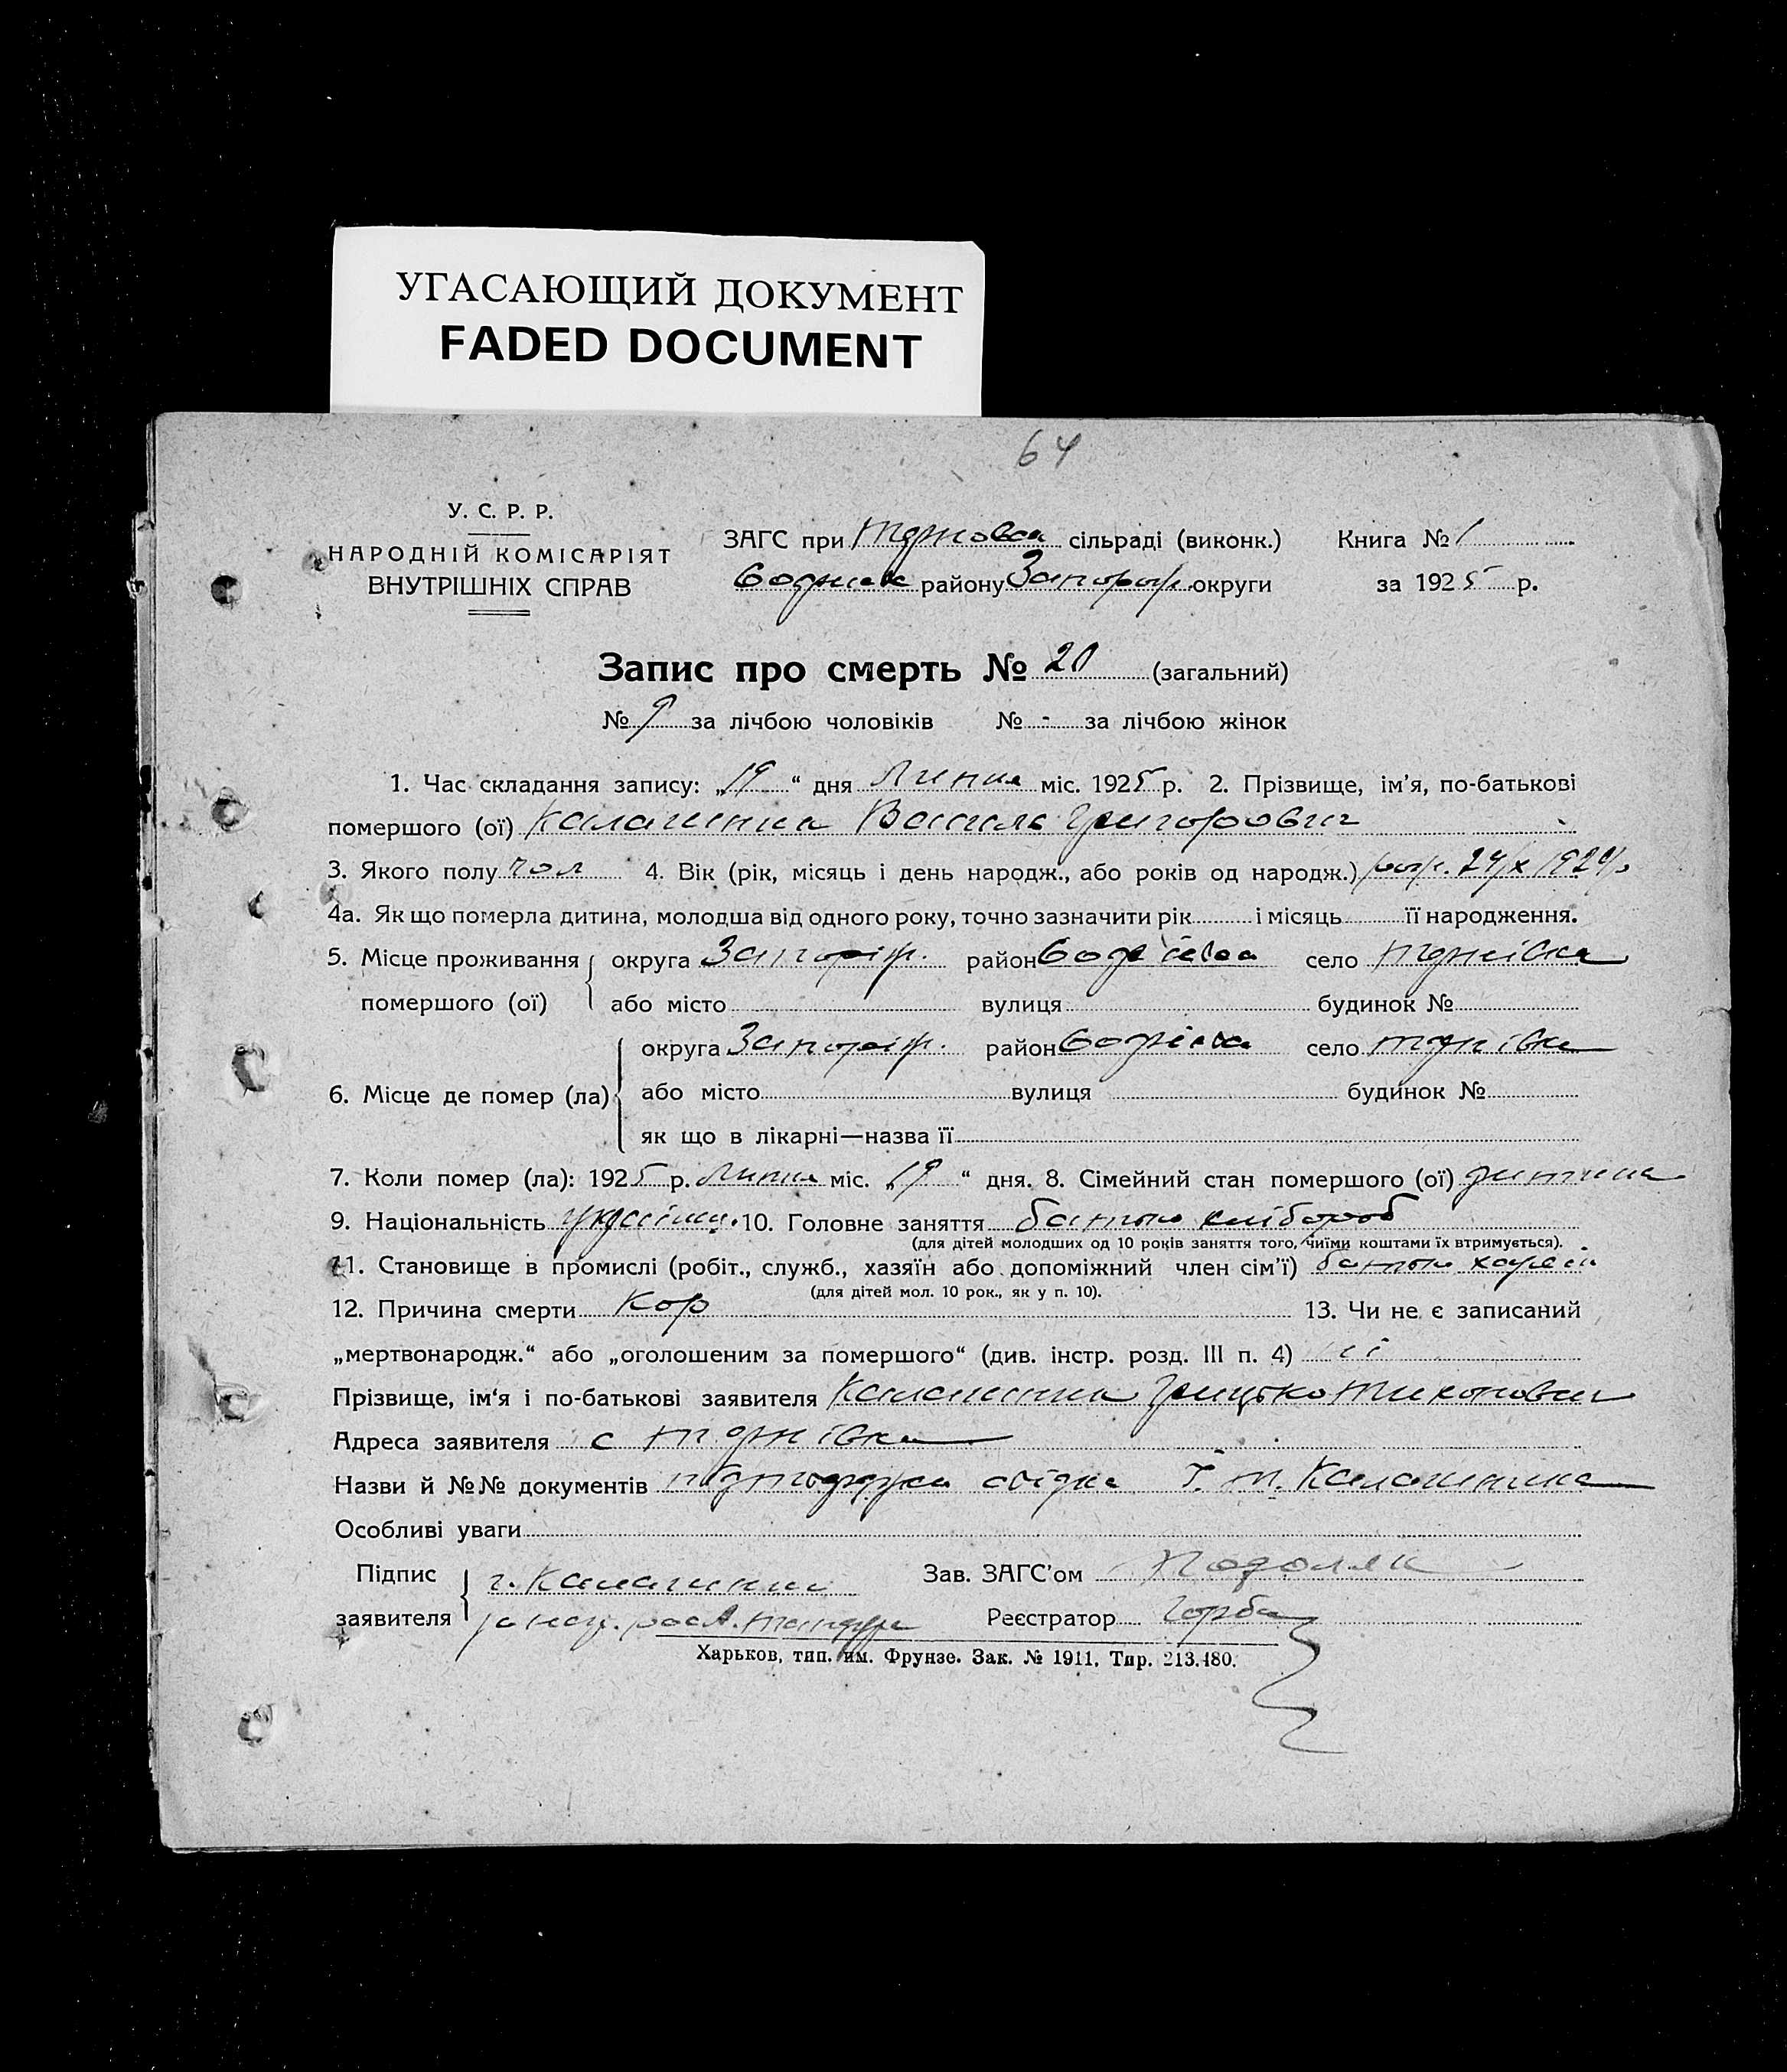 УГАСАЮЩИЙ ДОКУМЕНТ
FADED DOCUMENT
64
У. С. Р. Р.
НАРОДНІЙ КОМІСАРІЯТ
ВНУТРІШНІХ СПРАВ
ЗАГС при сільраді (виконк.)
району Запорож. округи
Книга № 1
за 1925 р.
Запис про смерть № 20 (загальний)
№ 9 за лічбою чоловіків № - за лічбою жінок
1. Час складання запису: „19“ дня Липня міс. 1925 р. 2. Прізвище, ім’я, по-батькові
помершого (ої) Калашник Василь Григорович
3. Якого полу чол 4. Вік (рік, місяць і день народж., або років од народж.) 1924
4а. Як що померла дитина, молодша від одного року, точно зазначити рік і місяць її народження.
5. Місце проживання помершого (ої) округа Запоріж. район село
або місто вулиця будинок №
6. Місце де помер (ла) округа Запоріж. район село
або місто вулиця будинок №
як що в лікарні—назва її
7. Коли помер (ла): 1925 р. Липня міс. „19“ дня. 8. Сімейний стан помершого (ої) дитина
9. Національність 10. Головне заняття батько хлібороб
(для дітей молодших од 10 років заняття того, чиїми коштами їх втримується).
11. Становище в промислі (робіт., служб., хазяїн або допоміжний член сім’ї) батько хазяїн
(для дітей мол. 10 рок., як у п. 10).
12. Причина смерти Кор 13. Чи не є записаний
„мертвонародж.“ або „оголошеним за помершого“ (див. інстр. розд. III п. 4) ні
Прізвище, ім‘я і по-батькові заявителя Калашник Грицько Тихонович
Адреса заявителя с
Назви й №№ документів
Особливі уваги
Підпис заявителя г. Калашник
Зав. ЗАГС’ом Подоляк
Реєстратор Горба
Харьков, тип. им. Фрунзе. Зак. № 1911. Тир. 213.480.